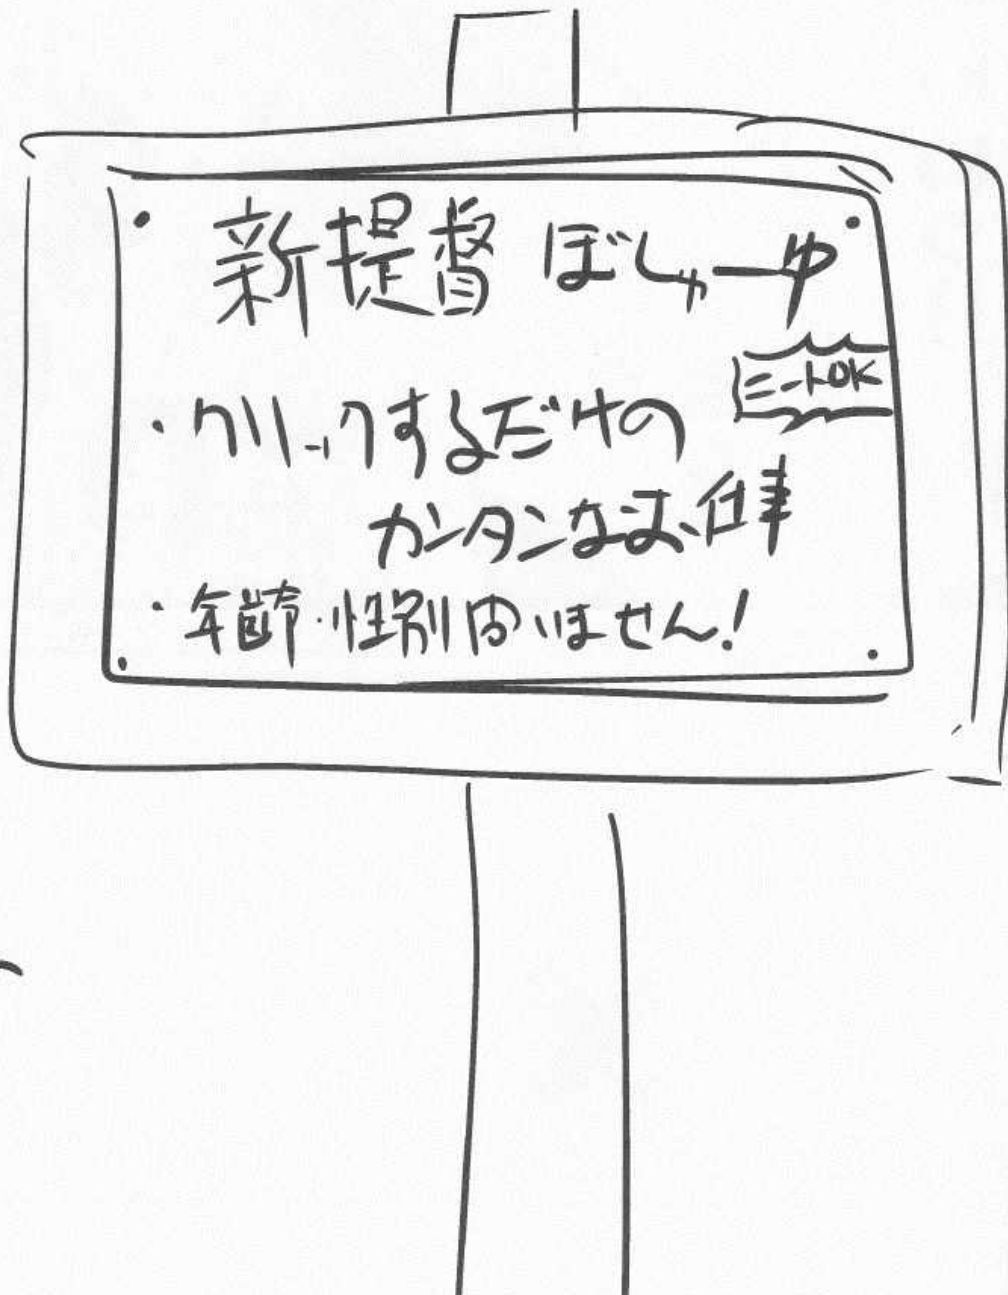 新提督 ぼしゅーゆ
ニートOK
・クリックするだけの
カンタンなお仕事
・年齢・性別問いません!